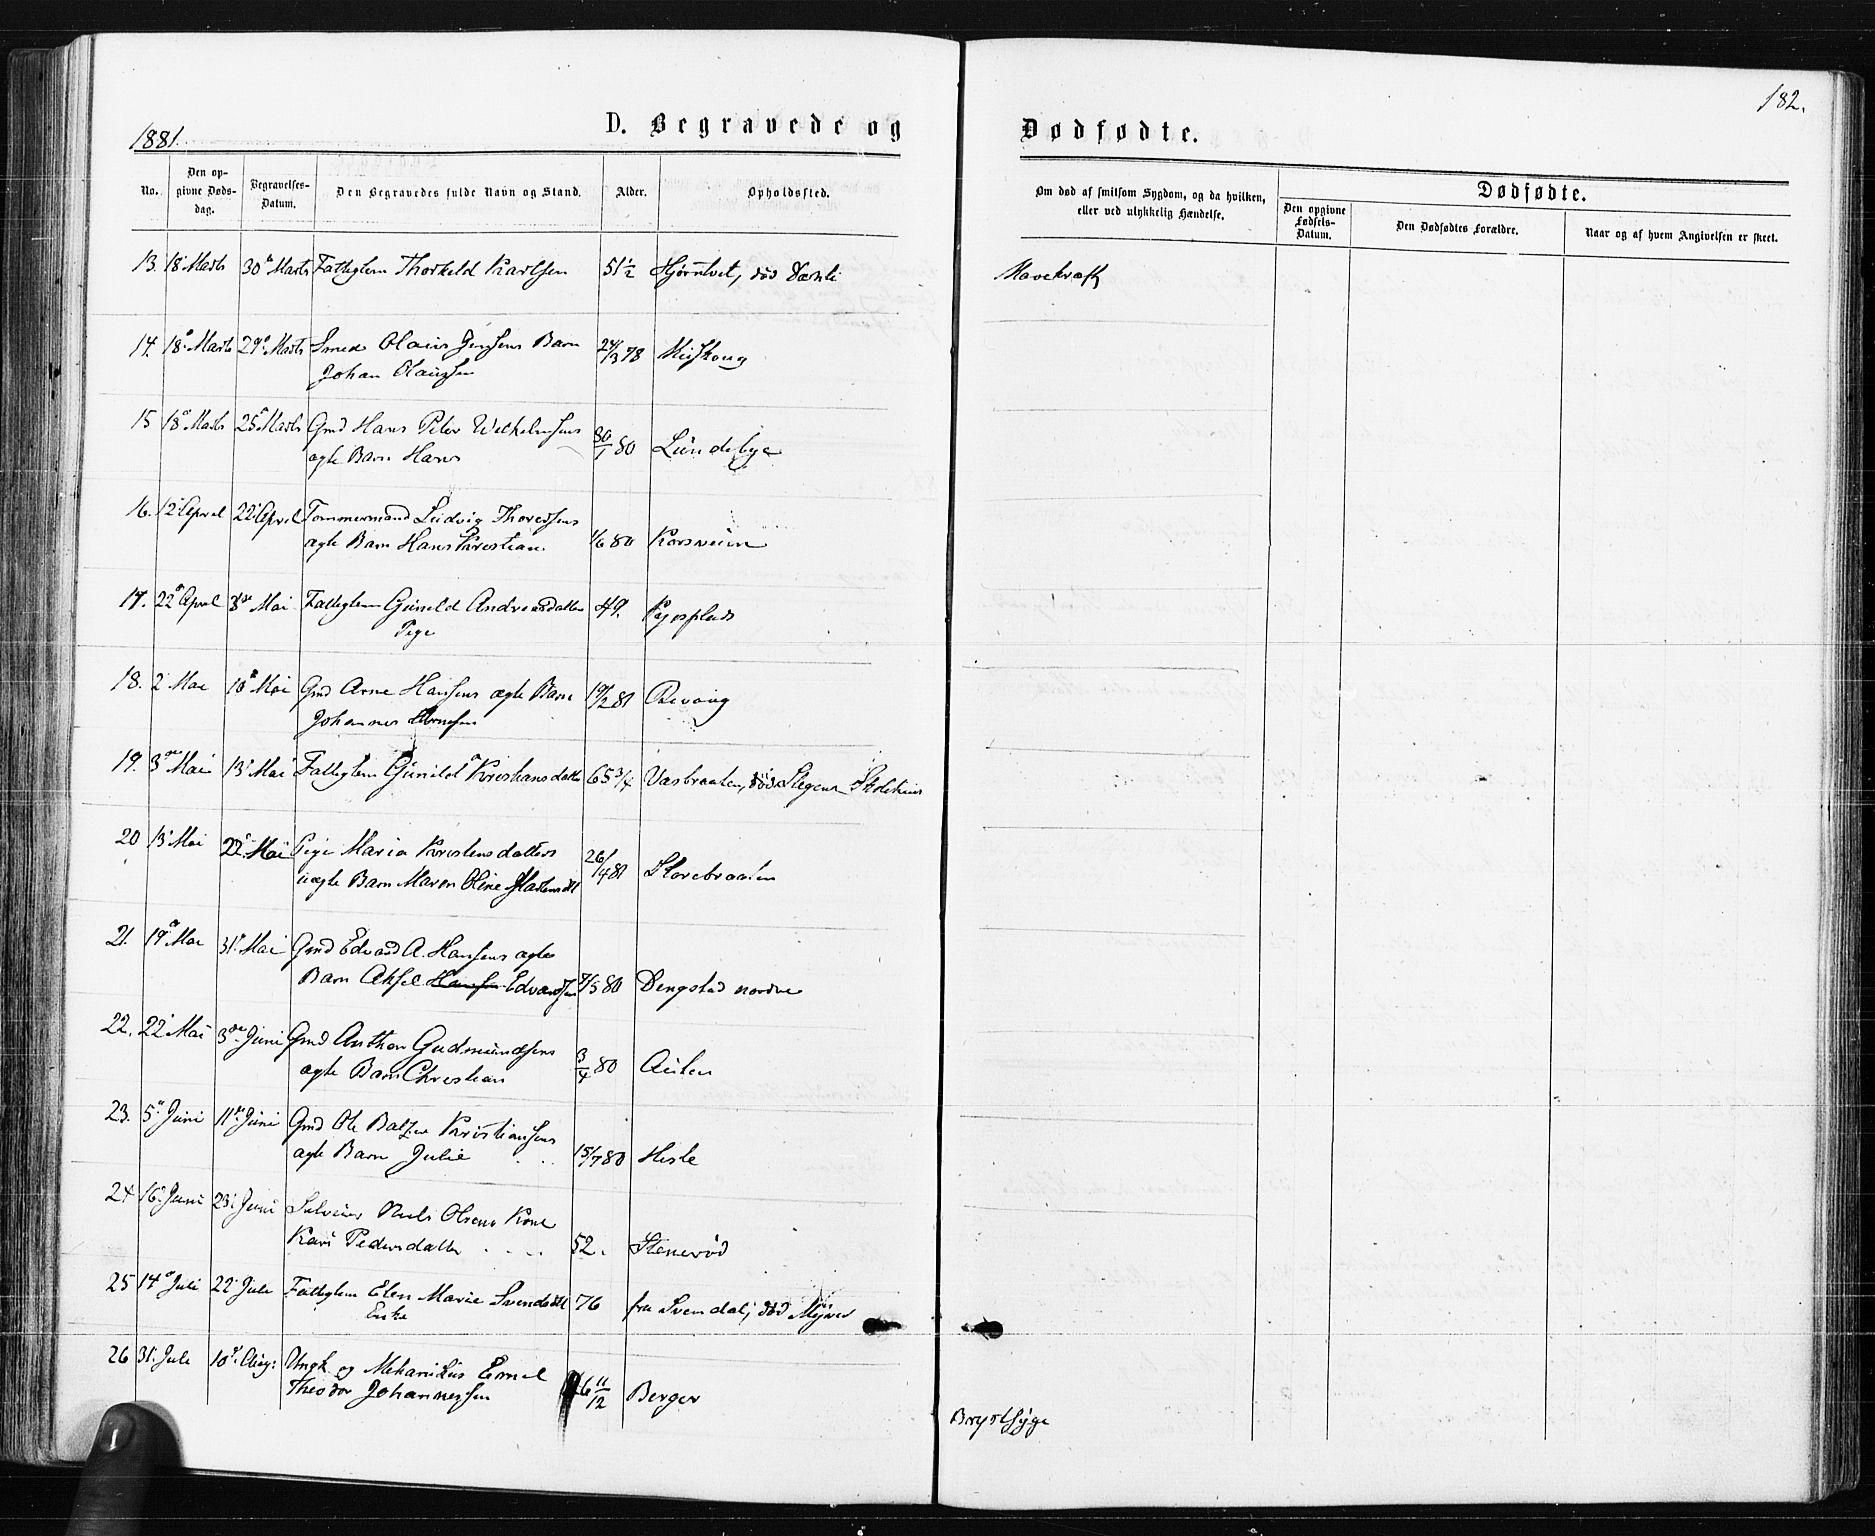 182.
1881.
D. Begravede og
Dødfødte.
No.
Den op-
givne Døds-
dag.
Begravelses-
Datum.
Den Begravedes fulde Navn og Stand.
Alder.
Opholdssted.
Om død af smitsom Sygdom, og da hvilken,
eller ved ulykkelig Hændelse.
Dødfødte.
Den opgivne
Fødsels-
Datum.
Den Dødfødtes Forældre.
Naar og af hvem Angivelsen er skeet.
13. 18 Marts 30 Marts Fattiglem Thorkeld Karlsen 51½ død Mavekræft
14. 18 Marts 29 Marts Smed Olaus Jensens Barn
Johan Olaussen 24/3 78
15 18 Marts 25 Marts Gmd Hans Peter Wilhelmsens
ægte Barn Hans 30/1 80 Lundebye
16. 12 April 22 April Tømmermand Ludvig Thoresens
ægte Barn Hans Kristian 1/6 80 Korsveien
17. 22 April 3 Mai Fattiglem Gunild Andreasdatter 49.
Pige
18. 2 Mai 10 Mai Gmd Arne Hansens ægte Barn
Johannes Arnesen 19/2 81
19. 3 Mai 13 Mai Fattiglem Gunild Kristiansdatter 65¾ død
20 13 Mai 22 Mai Pige Maria Kristensdatters
uægte Barn Maren Oline 26/4 81 Storebraaten
21. 19 Mai 31 Mai Gmd Edvard A. Hansens ægte
Barn Aksel Hansen Edvardsen 7/5 80 Dengstad nordre
22. 22 Mai 3 Juni Gmd Anthon Gudmundsens
ægte Barn Christian 3/4 80 Auten
23. 5 Juni 11 Juni Gmd Ole Baltzer Kristiansens
ægte Barn Julie 15/7 80
24 16 Juni 23 Juni Selveier Niels Olsens Kone
Kari Pedersdatter 52. Stenerød
25 14 Juli 22 Juli Fattiglem Elen Marie Svendsdtt 76 fra Svendal, død
Enke
26 31 Juli 10 Aug: Ungk. og Mekanikus Emil
Theodor Johannessen 11/12 Berger
Brystsyge